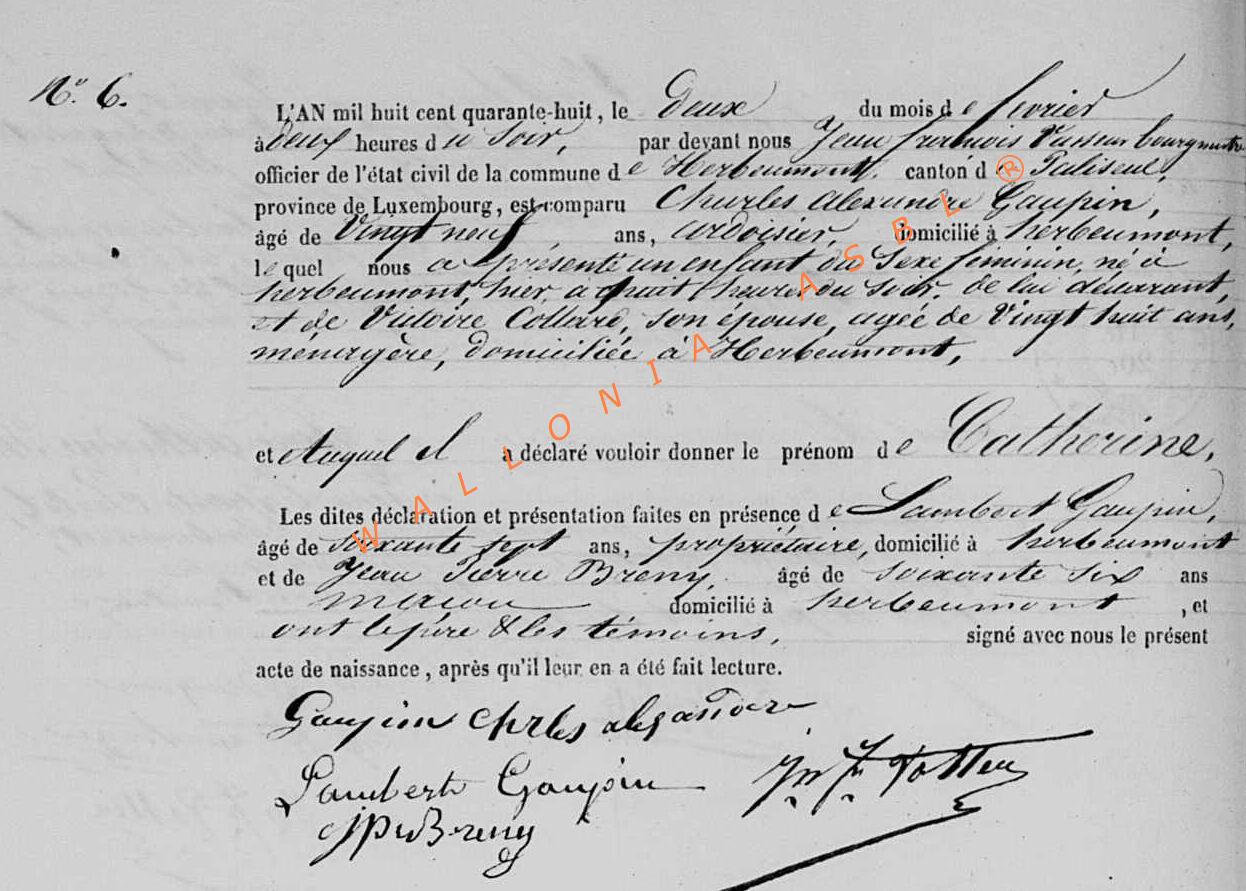 N.° 6.
L'AN mil huit cent quarante-huit, le deux du mois de fevrier
à deux heures du soir, par devant nous Jean françois bourgmestre
officier de l'état civil de la commune de Herbeumont, canton de Paliseul,
province de Luxembourg, est comparu Charles alexandre Gaupin,
âgé de Vingt neuf ans, ardoisier, domicilié à herbeumont,
lequel nous a présenté un enfant du Sexe feminin, né à
herbeumont, hier, a huit heures du soir, de lui déclarant,
et de Victoire Collard, son épouse, agée de Vingt huit ans,
ménagère, domiciliée à Herbeumont,
et Auquel il a déclaré vouloir donner le prénom de Catherine,
Les dites déclaration et présentation faites en présence de Lambert Gaupin,
âgé de soixante sept ans, propriétaire, domicilié à herbeumont
et de Jean Pierre Breny, âgé de soixante six ans
macon domicilié à herbeumont, et
ont le père & les témoins, signé avec nous le présent
acte de naissance, après qu'il leur en a été fait lecture.
Gaupin Chrles alexandre
Lambert Gaupin
JP Breny
WALLONIA ASBL ®